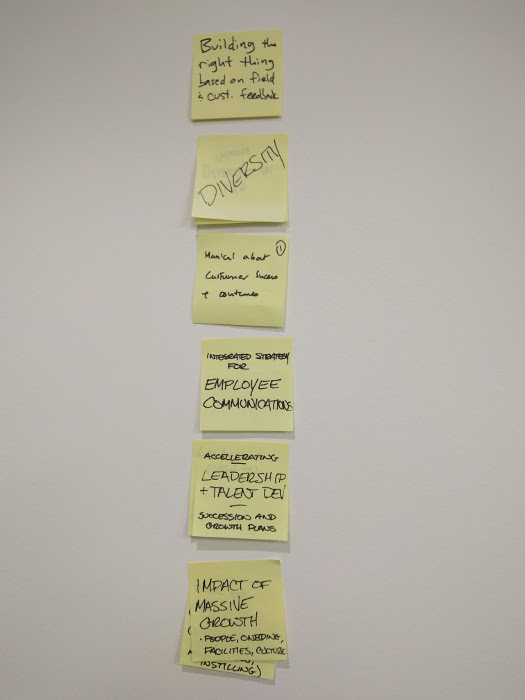 Building the
right thing
based on field
& cust. feedback
DIVERSITY
①
Maniacal about
Customer Success
+ outcomes
INTEGRATED STRATEGY
FOR
EMPLOYEE
COMMUNICATIONS
ACCELLERATING
LEADERSHIP
+ TALENT DEV
SUCCESSION AND
GROWTH PLANS
IMPACT OF
MASSIVE
GROWTH
· PEOPLE, ONBRDING,
FACILITIES, CULTURE
INSTILLING)